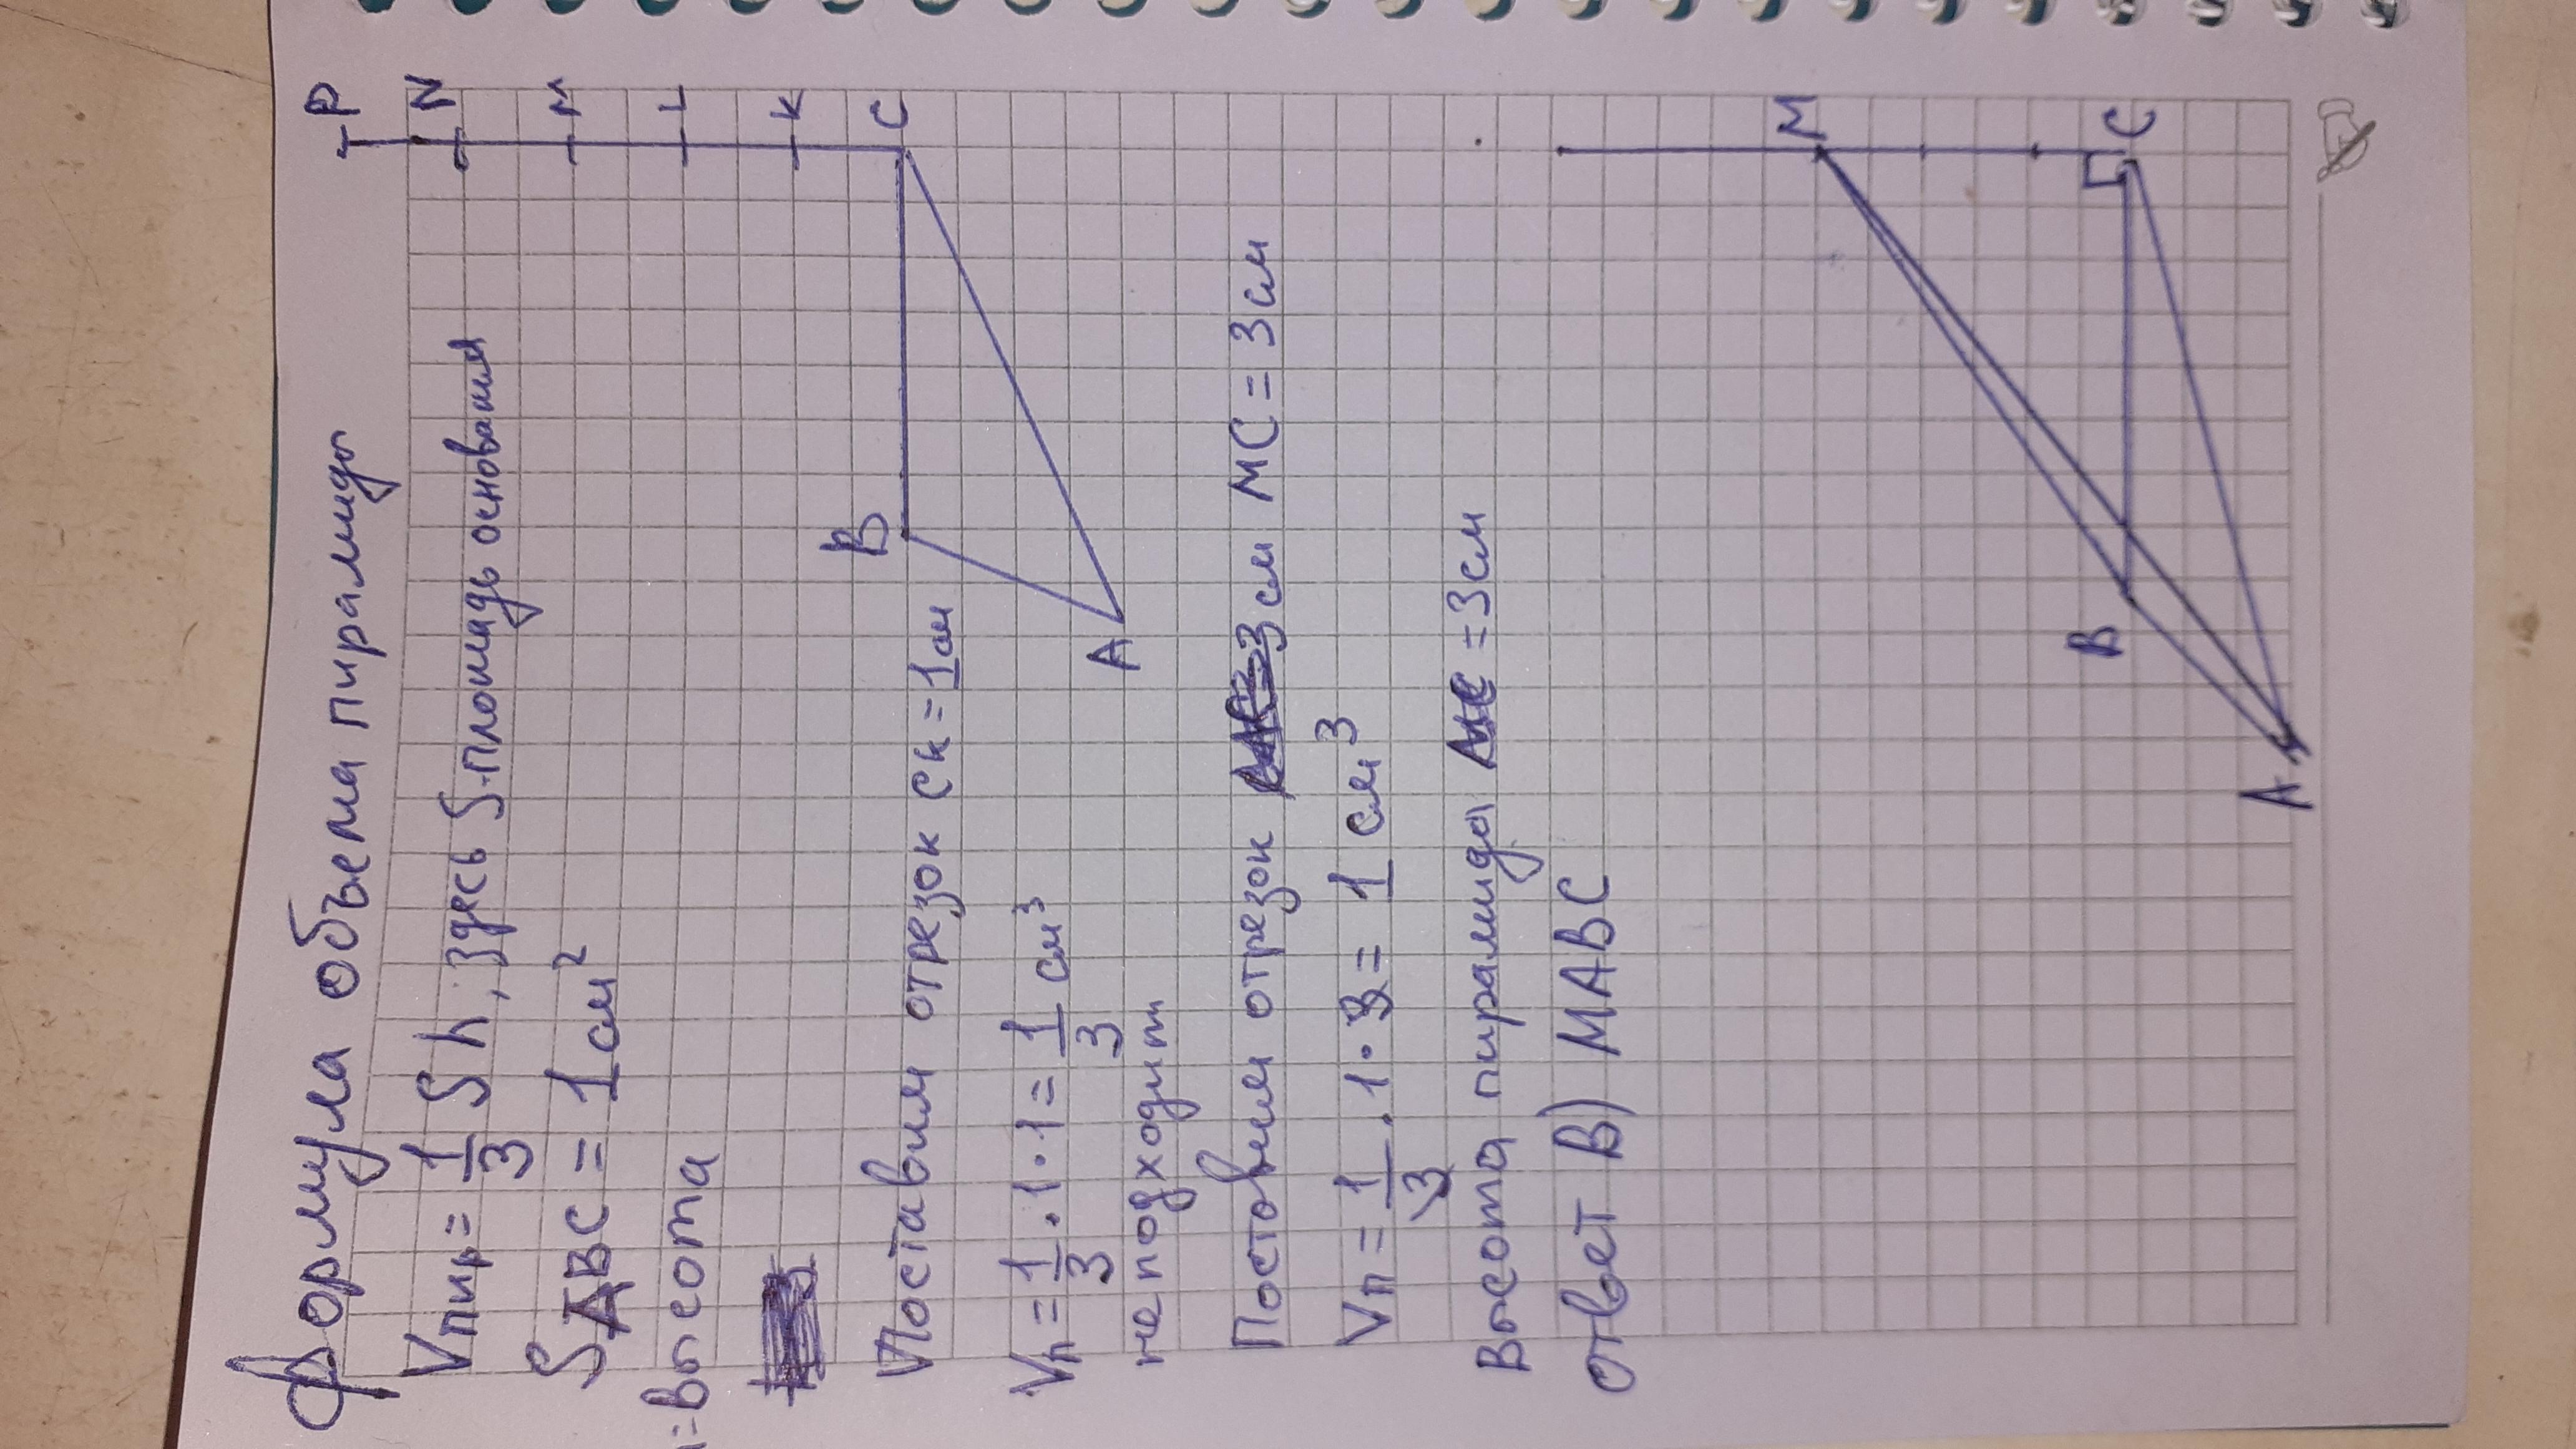 Формула объема пирамиды
Vпир = 1/3 S h, здесь S-площадь основания
SABC = 1 см²
=высота
P
N
M
L
K
C
B
A
Поставим отрезок CK = 1 см
Vп = 1/3 · 1 · 1 = 1/3 см³
не подходит
Поставим отрезок 3 см MC = 3 см
Vп = 1/3 · 1 · 3 = 1 см³
Высота пирамиды МС = 3 см
ответ B) MABC
M
C
B
A